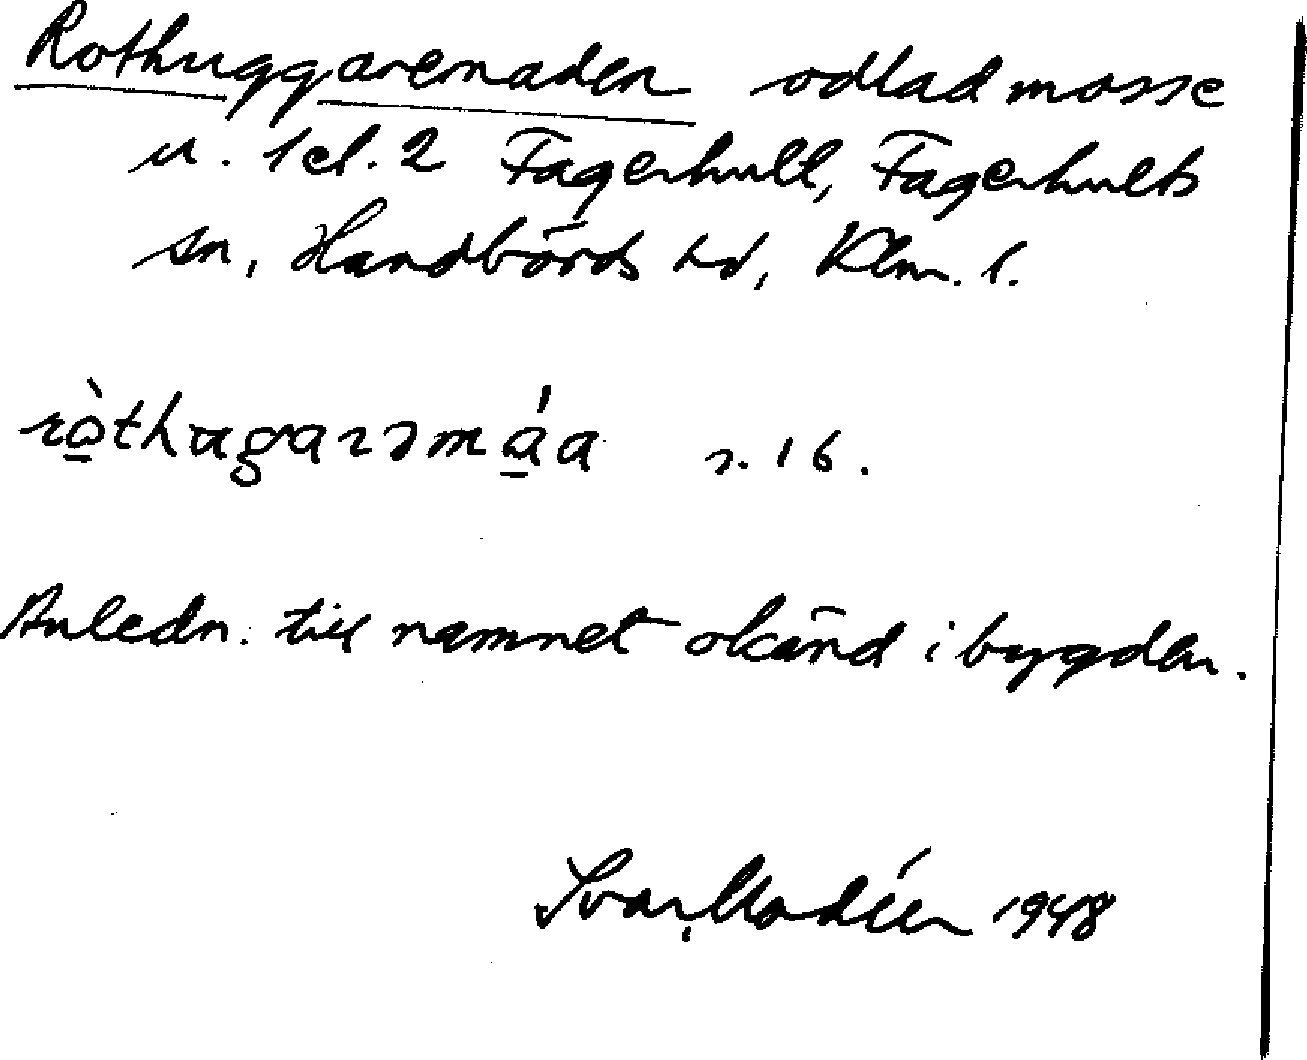 Rothuggaremaden odlad mosse
u. 1 el. 2 Fagerhult, Fagerhults
sn, Handbörds hd, Klm. l.
ròthugarəmáa s. 16.
Anledn. till namnet okänd i bygden.
Ivar Modéer 1948